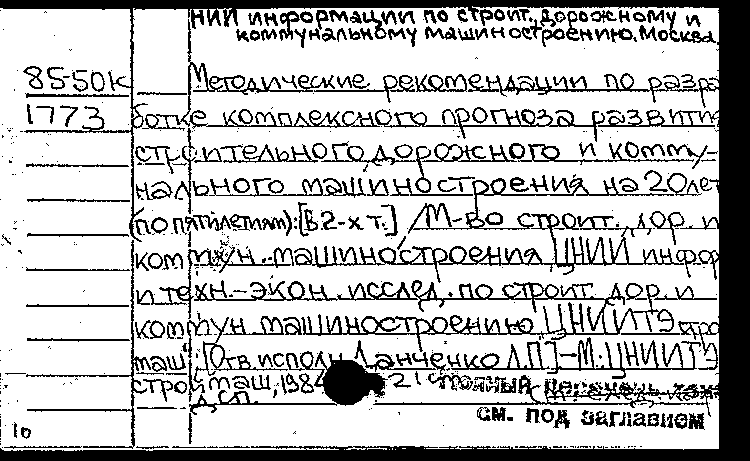 НИИ информации по строит., дорожному и
коммунальному машиностроению. Москва.
85-50к Методические рекомендации по разра
1773 ботке комплексного прогноза развития
строительного, дорожного и комму-
нального машиностроения на 20 лет
(по пятилетиям): [В 2-х т.] / М-во строит., дор. и
коммун. машиностроения, ЦНИИ инфор
и техн.-экон. исслед. по строит. дор. и
коммун. машиностроению, ЦНИИТЭ стро
маш", [Отв. исполн. Данченко Л.П.] - М.: ЦНИИТЭ
строймаш, 198 21
Д.С.П.
см. под заглавием
10